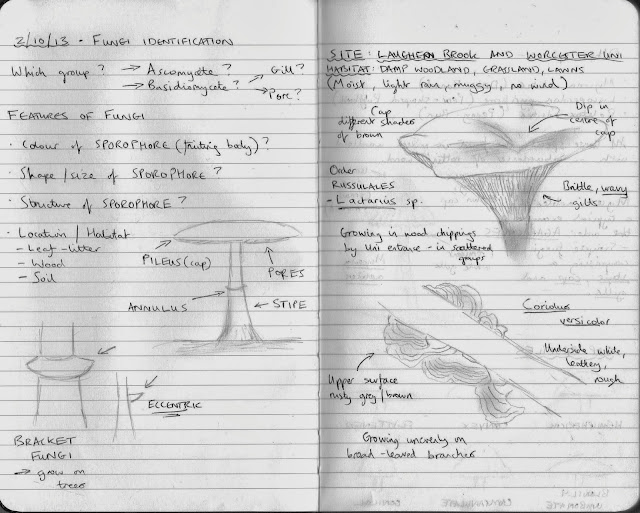 2/10/13 - FUNGI IDENTIFICATION
Which group? → Ascomycete?
→ Basidiomycete?
→ Gill?
→ Pore?
FEATURES OF FUNGI
· Colour of SPOROPHORE (fruiting body)?
· Shape/size of SPOROPHORE?
· Structure of SPOROPHORE?
· Location/Habitat
- Leaf-litter
- Wood
- Soil
PILEUS (cap)
PORES
ANNULUS
STIPE
ECCENTRIC
BRACKET
FUNGI
→ grow on
trees
SITE: LAUGHERN BROOK AND WORCESTER UNI
HABITAT: DAMP WOODLAND, GRASSLAND, LAWNS
(Moist, light rain, muggy, no wind)
Cap
different shades
of brown
Dip in
centre of
cap
Order
RUSSULALES
- Lactarius sp.
Brittle, wavy
gills
Growing in wood chippings
by Uni entrance - in scattered
groups
Coriolus
versicolor
Underside white,
leathery,
rough
Upper surface
rusty grey/brown
Growing unevenly on
broad-leaved branches